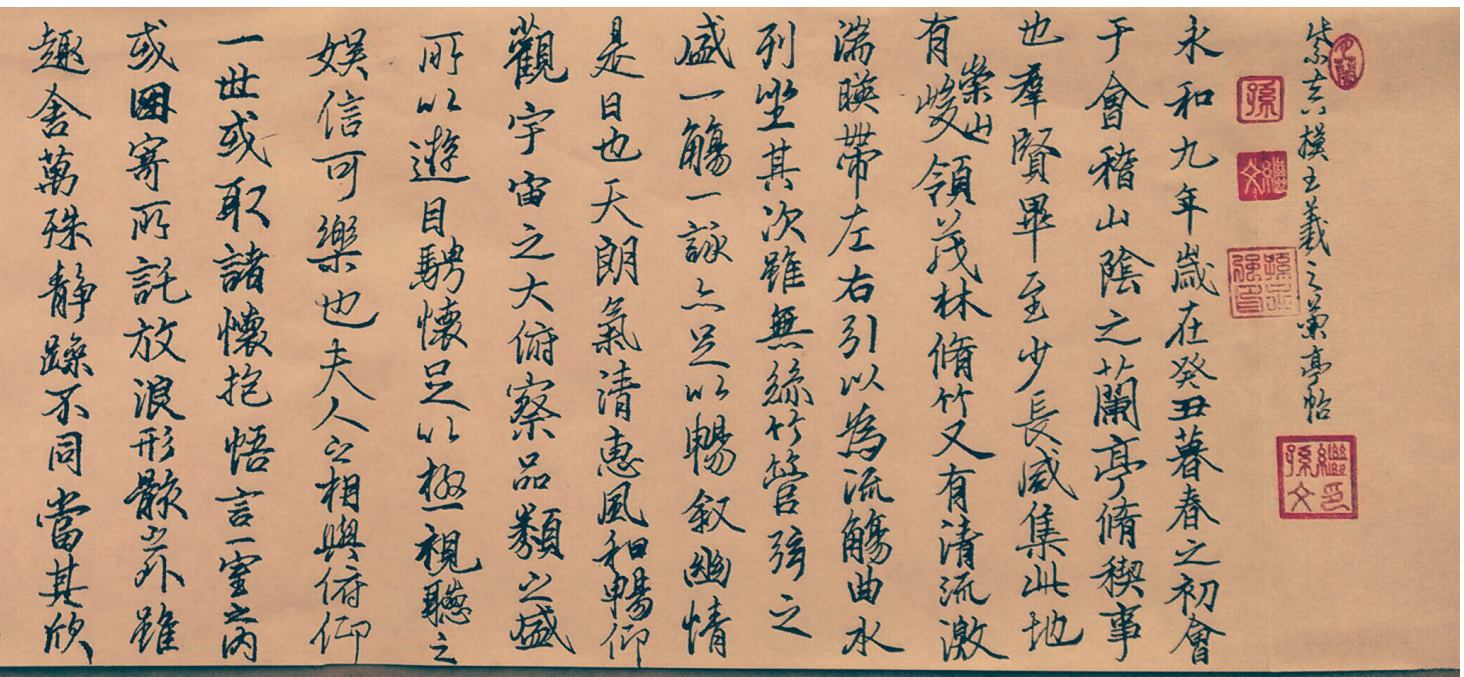 摸王羲之蘭亭帖
孫
繼文
孫文繼印
永和九年歲在癸丑暮春之初會
于會稽山陰之蘭亭脩稧事
也羣賢畢至少長咸集此地
有崇山峻領茂林脩竹又有清流激
湍暎帶左右引以為流觴曲水
列坐其次雖無絲竹管弦之
盛一觴一詠亦足以暢叙幽情
是日也天朗氣清惠風和暢仰
觀宇宙之大俯察品類之盛
所以遊目騁懷足以極視聽之
娛信可樂也夫人之相與俯仰
一世或取諸懷抱悟言一室之內
或因寄所託放浪形骸之外雖
趣舍萬殊静躁不同當其欣